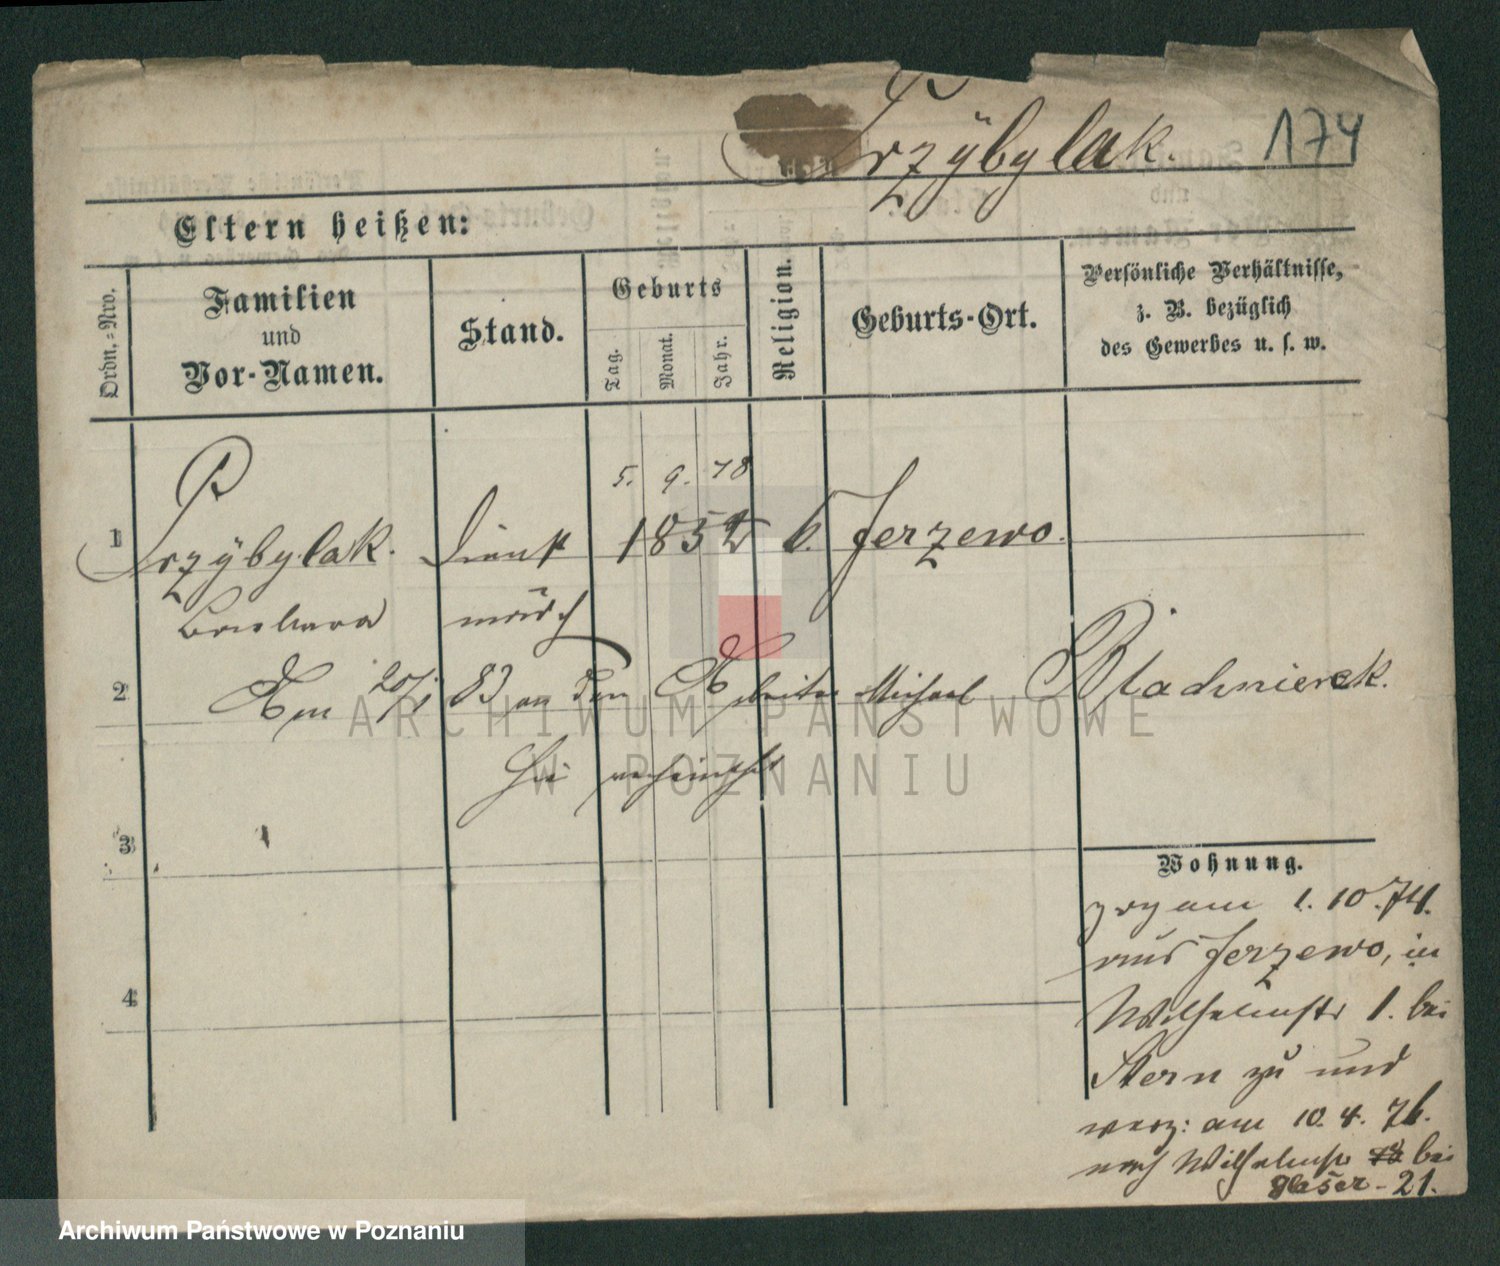 Przÿbylak. 174
Eltern heißen:
Ordn.-Nro.
Familien
und
Vor-Namen.
Stand.
Geburts
Tag.
Monat.
Jahr.
Religion.
Geburts-Ort.
Persönliche Verhältnisse,
z. B. bezüglich
des Gewerbes u. s. w.
5. 9. 78
1 Przÿbylak. Dienst 1852 k. Jerzewo.
Barbara mädch
2 Am 20/1 83 an den Arbeiter Michael Bladnierek.
hie verheirathet
3
4
Wohnung.
zog am 1. 10. 74.
aus Jerzewo, in
Wilhelmstr 1. bei
Stern zu und
verz: am 10. 4. 76.
nach Wilhelmstr bei
Glaser - 21.
ARCHIWUM PAŃSTWOWE
W POZNANIU
Archiwum Państwowe w Poznaniu